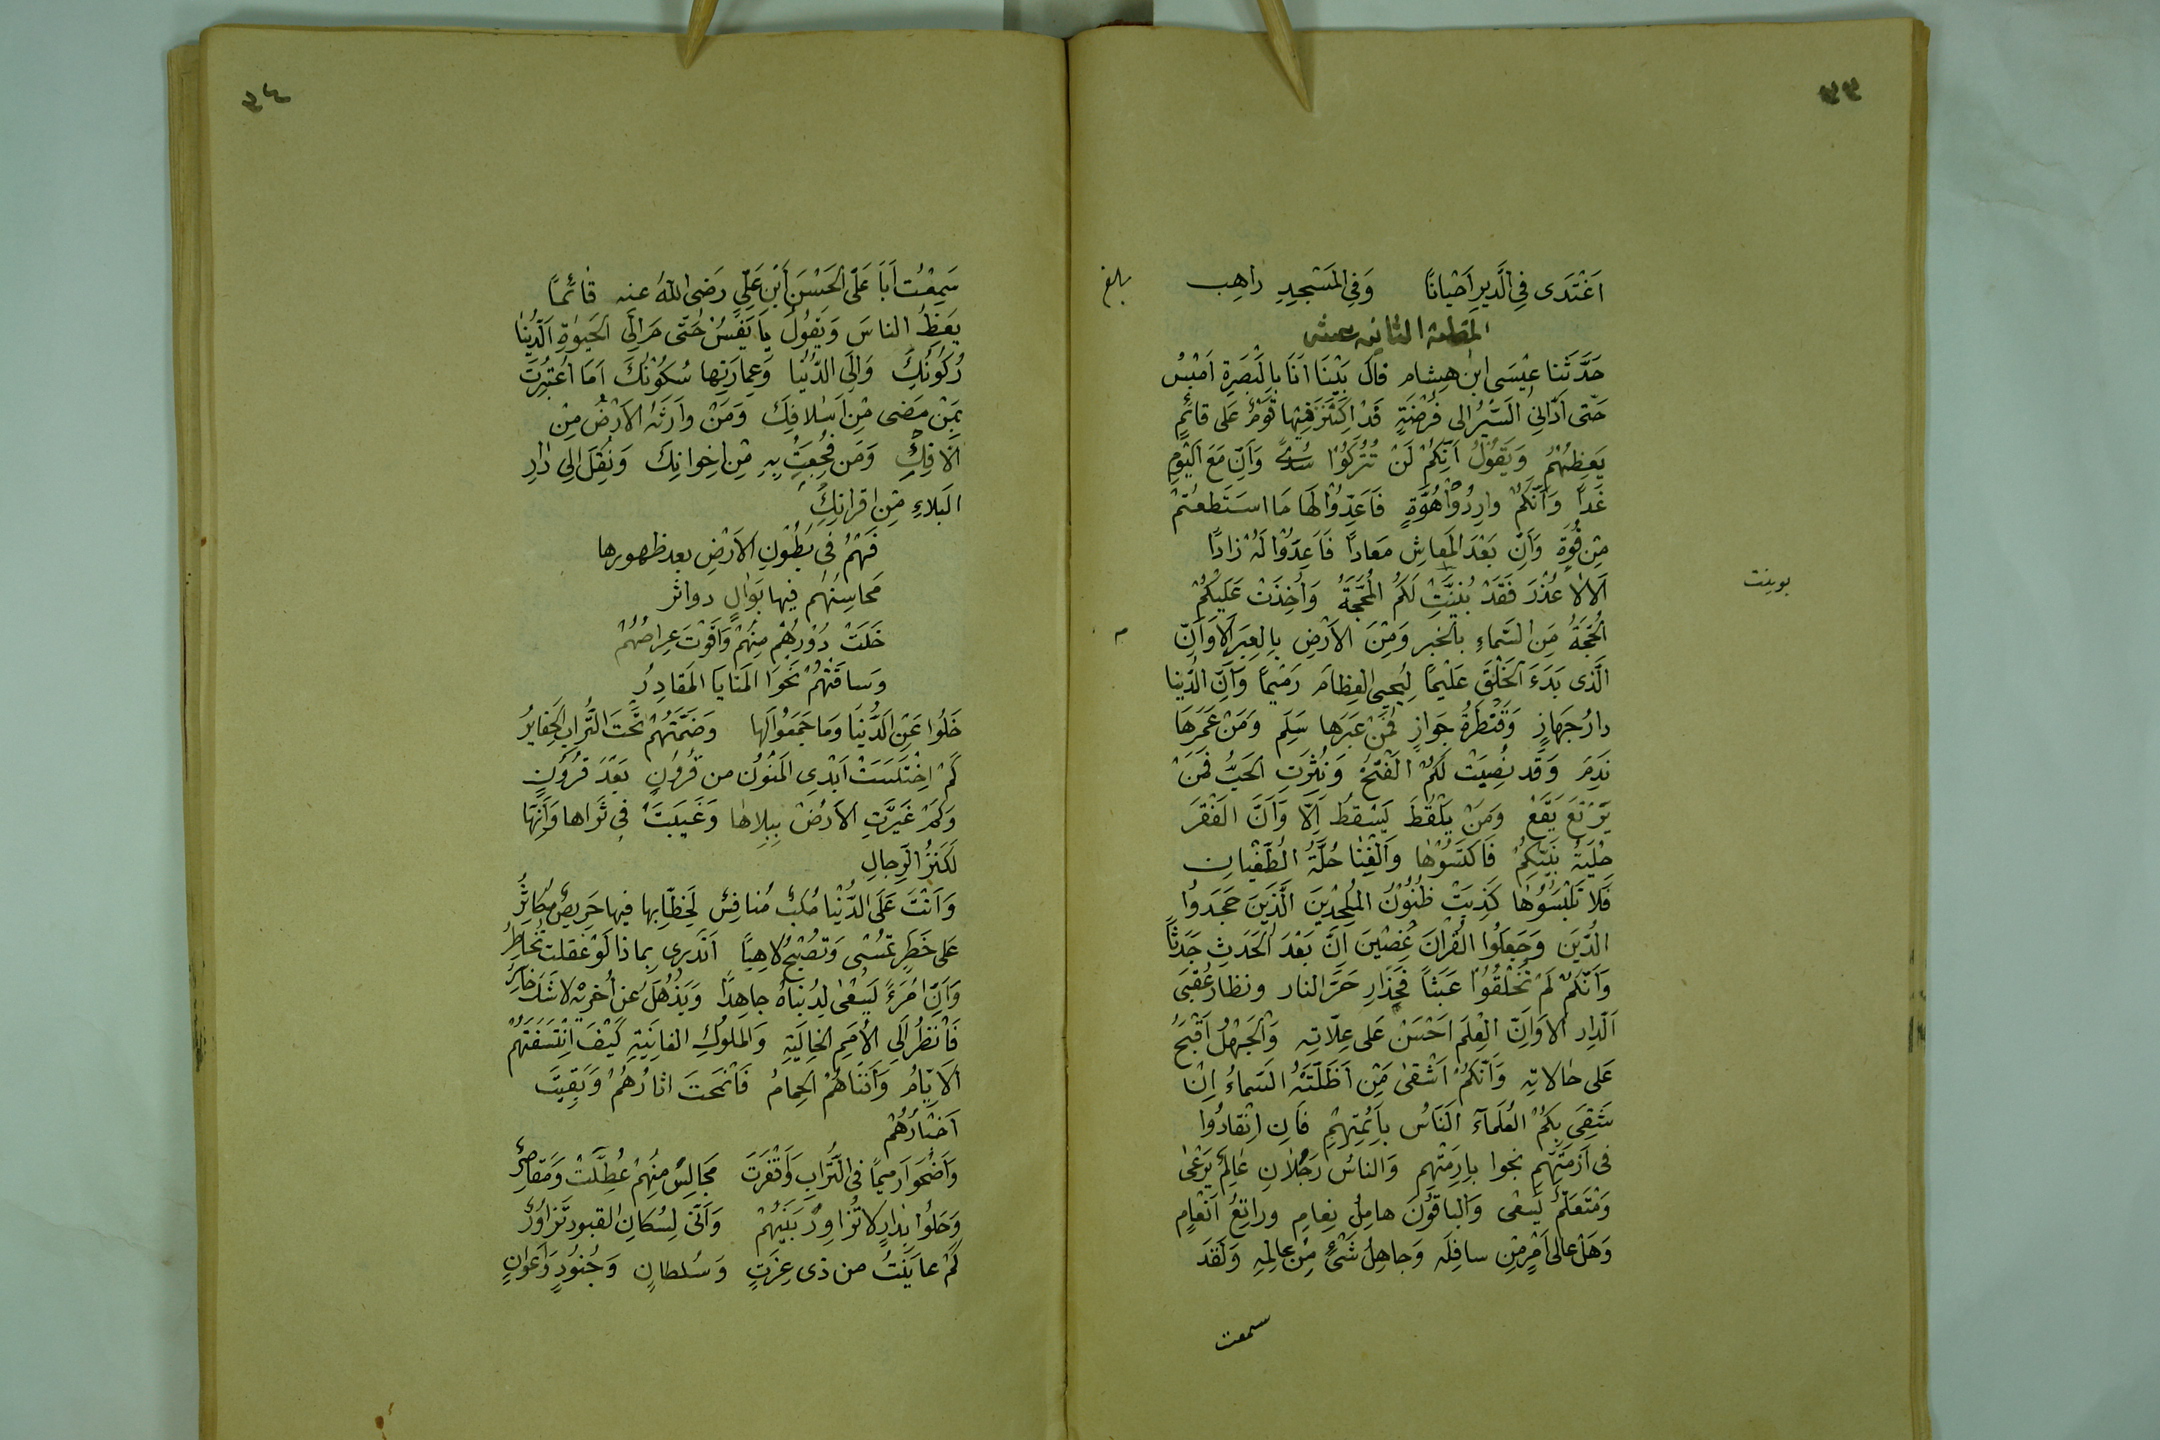 ٣٣
اَغْتَدى فِي الَّديرِ اَحْيانًا وَفِي المَسْجِدِ راهِب
بلغ
المقامة الثانيه عشر
حَدَّثَنا عيْسَى ابن هِشام قالَ بَيْنَا اَنَا بِالْبَصَرةِ اَمْيسُ
حَتّى اَدّانِي السَّيْرُ الى فُرْضَةٍ قَدْ اِكثَرَ فيْها قَوْمٌ عَلى قائمٍ
يَعِظُهُمْ وَيَقُولُ اَنّكُمْ لَنْ تُتْرَكُوُا سُدىً وَاَنّ مَعَ اليَوْمِ
غَداً وَاَنّكمْ وارِدُوْا هُوّةٍ فَاَعِدُّوْا لَها مَا اسْتَطعتُمْ
مِّن قُوّةٍ وَاَنّ بَعْدَ المَعاشِ مَعادًا فَاَعِدّوْا لَهُ زادًا
اَلا لا عُذْرَ فَقَدْ بُيّنَتْ لَكُمُ المُحَجّةُ وَاُخِذَتْ عَلَيكُمْ
بوينت
الحُجّةُ مِنَ السَّماءِ بالخبر وَمِنَ الاَرْضِ بِالعِبَرِ اَلا وَاَنّ
م
الّذى بَدَءَ الخَلْقَ عَليْمًا لِيُحيى العِظامَ رَميْمًا وَاَنّ الدُّنيا
دارُ جَهازٍ وَقَنْطَرةُ جَوازٍ فَمَنْ عَبَرَها سَلِمَ وَمَنْ عَمَرَها
نَدِمَ وَقَد نُصِبَتْ لَكُمْ الفَتْحُ وَنُثِرَتِ الحَبُّ فَمَنْ
يَرْتَعْ يَقَعْ وَمَنْ يَلْقُطْ يَسْقُطْ اَلا وَاَنّ الفَقْرَ
حِلْيَةُ نَبيّكِمُ فَاكتَسُوْها وَالغِنا حُلّةُ الطُّغْيانِ
فَلا تَلْبَسُوْها كَذِبَتْ ظُنُوْنُ المُلحِدِيْنَ الّذينَ جَحَدُوا
الدّيْنَ وَجَعَلُوا القُرْانَ عِضِيْنَ اِنّ بَعْدَ الحَدَثِ جَدَثًا
وَاَنّكمْ لَمْ تُخْلَقُوْا عَبَثًا فَحِذارِ حَرَّ النار ونظار عُقْبَى
الّدارِ اَلا وَاِنّ العِلمَ اَحْسَنْ عَلى عِلّاتِه وَالجَهْلُ اَقْبَحُ
عَلى حالاتِه وَاَنّكمْ اَشْقى مَنْ اَظَلَّتْهُ السَّماءُ اِنْ
شَقِىَ بِكُمُ العُلَماءُ النّاسُ بِاَئمّتِهِمْ فَانِ انْقادُوا
فى اَزِمّتَهِم نجوا بِاَزِمّتهِم وَالناسُ رَجُلانِ عالِمٌ يَرْعى
وَمُتَعَلّمٌ يَسْعى وَالباقُوْنَ هامِلُ نِعامٍ وراتِعُ اَنْعامٍ
وَهَلْ عالى اَمْرٍ مِّن سافِلَه وَجاهِلُ شَئْ مِّن عالمِهِ وَلَقَد
سمعت
٣٤
سَمِعْتُ اَبا عَلَى الحَسْنَ اَبْنِ عَلِىّ رَضى اللهُ عنه قائمًا
يَعِظُ الناسَ وَيَقُولُ يا نَفسُ حَتّى مَ اِلَى الحَيوةِ الدُّنيا
رُكوُنُكِ وَالىَ الدُّنْيا وَعِمارَتِها سُكوُنُكَ اَمَا اعْتَبَرْتَ
بمَنْ مَضى مِّن اَسْلافِكَ وَمَنْ وارَتْهُ الاَرْضُ مِنْ
اُلّافِكِ وَمَن فُجِعْتِ بِهِ مِّن اِخوانِكَ وَنُقِلَ اِلى دارِ
البَلاءِ مِّن اقرانِكِ
فَهُمْ فى بُطُوْنِ الاَرْضِ بعد ظهورها
مَحاسِنُهُم فيها بَوالٍ دواثر
خَلَتْ دُوْرُهُم مِنهُمْ وَاَقْوَتْ عِراصُهُمْ
وساقَتْهُمْ نَحْوَ المَنايَا المَقادِرُ
خَلُوا عَنِ الدُّنيا وَما جَمَعُوْا لَها وَضَمَّتهُمْ تَحْتَ التُّرابِ الحَفايرُ
كَمْ اِخْتَلَسَتْ اَيْدى المَنُوْن من قُرُوْنٍ بَعْدَ قُروُنٍ
وَكَمْ غَيَّرَتِ الاَرْضُ بِبِلاها وَغَيّبَتْ فى ثَراها وَاَنّها
لَكَنزُ الرِّجالِ
وَاَنْتَ عَلَى الدُّنْيا مُكبٌ مُنافِسٌ لِخُطّابِها فيها حَريصٌ مُكاثِرٌ
عَلى خَطَرٍ تُمْسْى وَتُصْبْحُ لاهِيًا اَتَدْرى بِماذا لَوْ عَقلتَ تُخاطِرُ
وَاَنّ امْرَءً يَسْعىٰ لِدُنْياهُ جاهِدًا وَيَذْهَلُ عن اُخريٰه لا شَكَّ خاسِرُ
فَانْظُرْ اِلَى الاُمَمِ الخالِيَةِ وَالملوُكِ الفانِيَةِ كَيْفَ اِنْتَسَفَتْهُمُ
الاَيّامُ وَاَفْنَاهُمُ الحِمامُ فَانْمَحَتْ اثارُهُمْ وَبَقِيَتْ
اَخْبارُهُمْ
وَاَضْحَوْا رَميمًا فى التُّرابِ وَاَقْفَرَتْ مَجالِسُ مِنهُمْ عُطّلَتْ وَمَقاصِرُ
وَحَلوُّا بِدارٍ لا تَزاوُرَ بَيْنَهُمْ وَاَنّى لِسُكانِ القبورِ تَزاوُرُ
كَمْ عايَنْتُ من ذى عِزّتٍ وَسُلطانٍ وَجُنوُدٍ وَاَعوانٍ